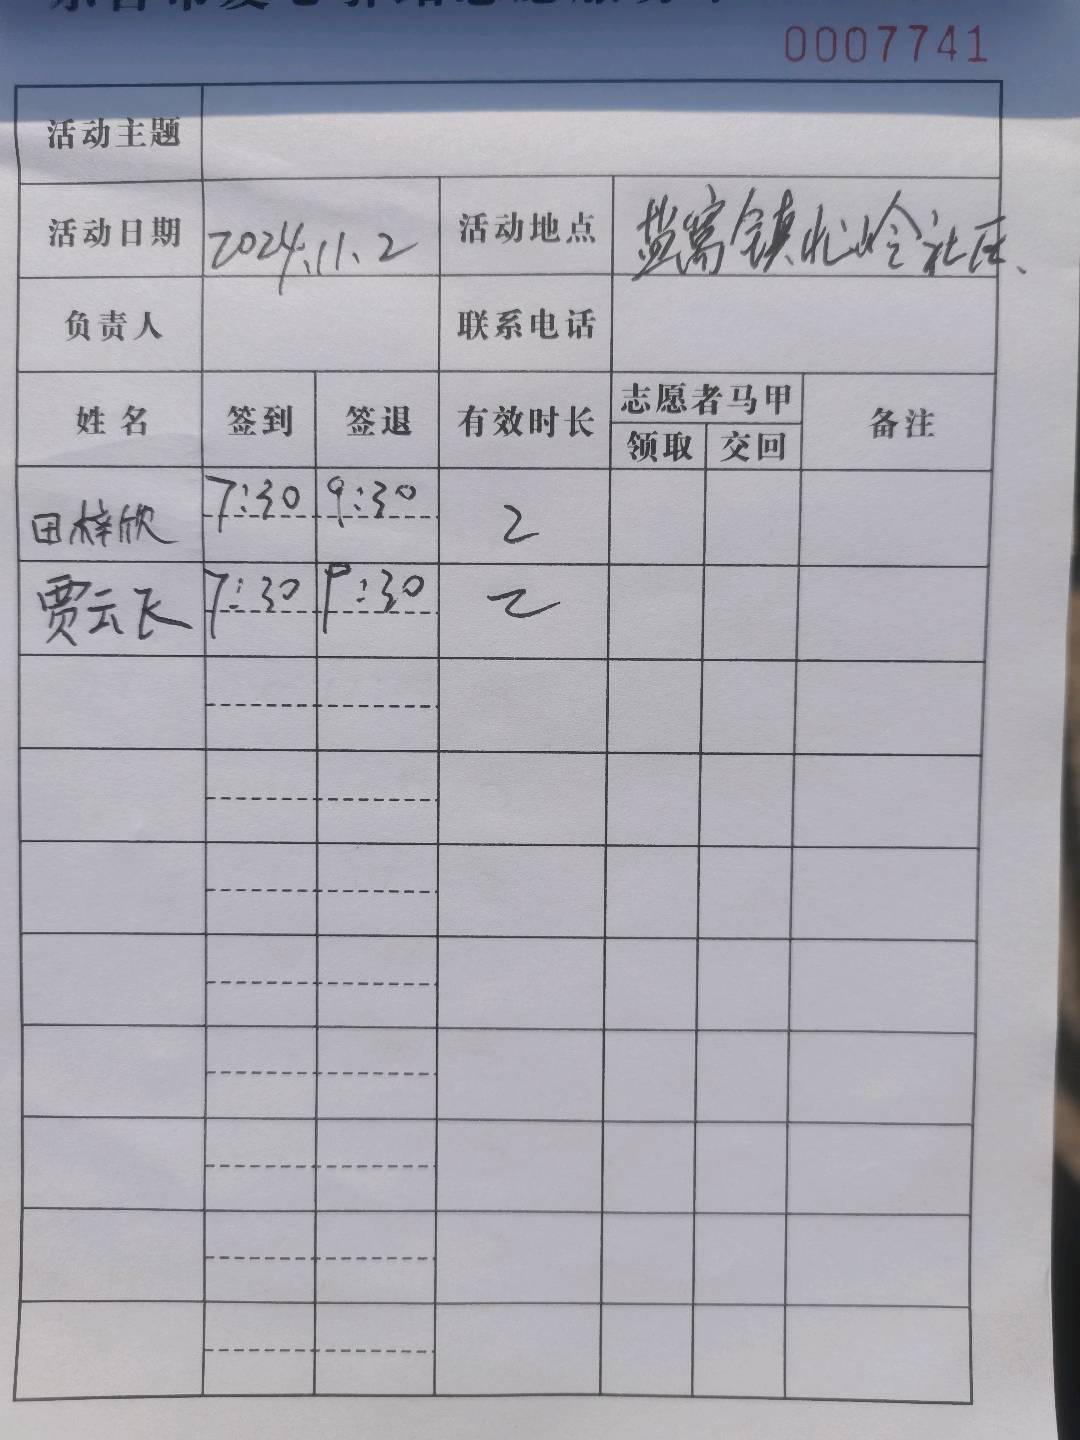 0007741
活动主题
活动日期 2024.11.2 活动地点 盐窝镇北岭社区、
负责人 联系电话
姓名 签到 签退 有效时长 志愿者马甲 备注
领取 交回
田梓欣 7:30 9:30 2
贾云飞 7:30 9:30 2